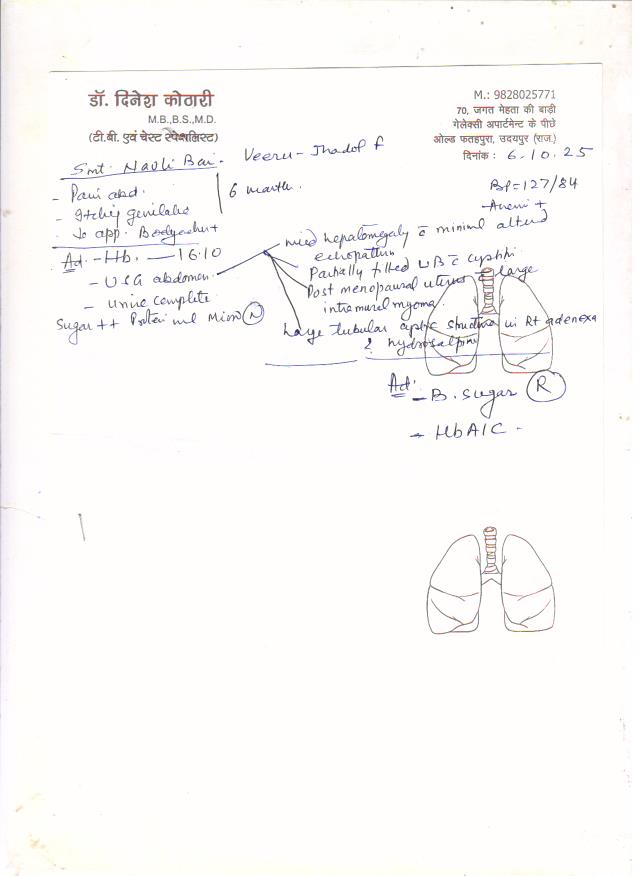 डॉ. दिनेश कोठारी
M.B.,B.S.,M.D.
(टी.बी. एवं चेस्ट स्पेशलिस्ट)
M.: 9828025771
70, जगत मेहता की बाड़ी
गेलेक्सी अपार्टमेन्ट के पीछे
ओल्ड फतहपुरा, उदयपुर (राज.)
दिनांक : 6.10.25
Smt. Navli Bai. Veeru - Jhadol F
BP=127/84
- Pain abd.
- Itching
6 month.
app. Bodyache +
Ad. - Hb. — 16.10
- USG abdomen
- Urine complete
Sugar ++ Protein nil Micro (N)
mild hepatomegaly c̄ minimal altered
echopattern
Partially filled UB c̄ cystitis
Post menopausal uterus c̄ large
intramural myoma
Large tubular cystic structure in Rt adenexa
? hydrosalpinx
Ad:
- B. Sugar (R)
- HbA1C -